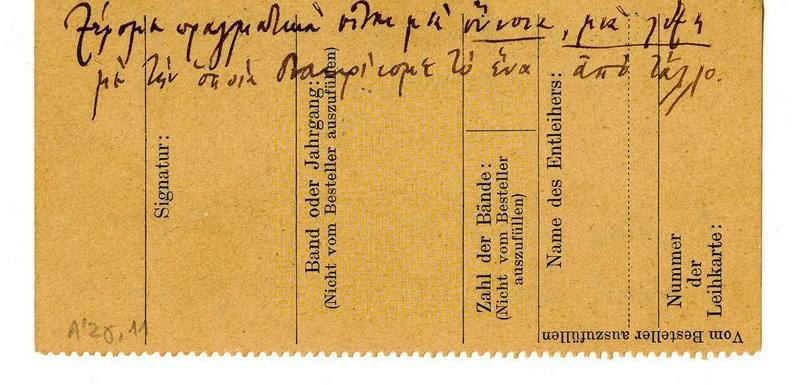 ξέρομε πραγματικὰ οὔτε μιὰ ἔννοια, μιὰ λέξη
μὲ τὴν ὁποία διακρίνομε τὸ ἕνα ἀπὸ τἄλλο.
Signatur:
Band oder Jahrgang:
(Nicht vom Besteller auszufüllen)
Zahl der Bände:
(Nicht vom Besteller
auszufüllen)
Name des Entleihers:
Nummer
der
Leihkarte:
Vom Besteller auszufüllen